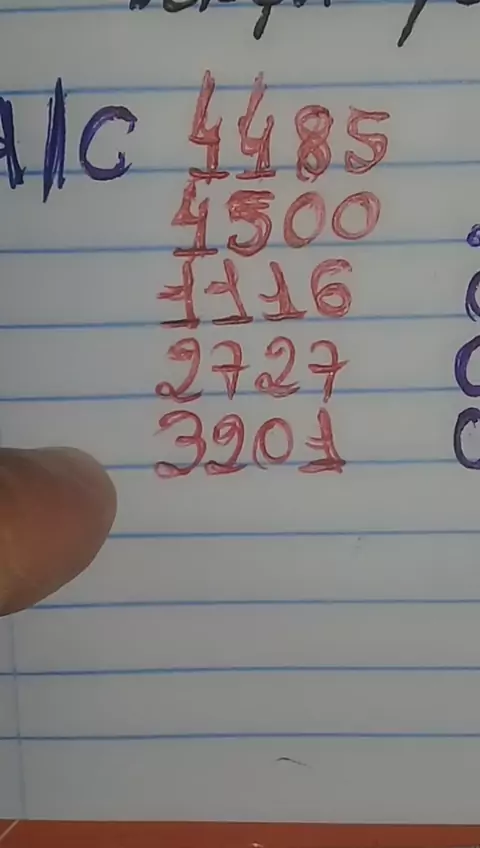 A/C 4485
4500
1116
2727
3901